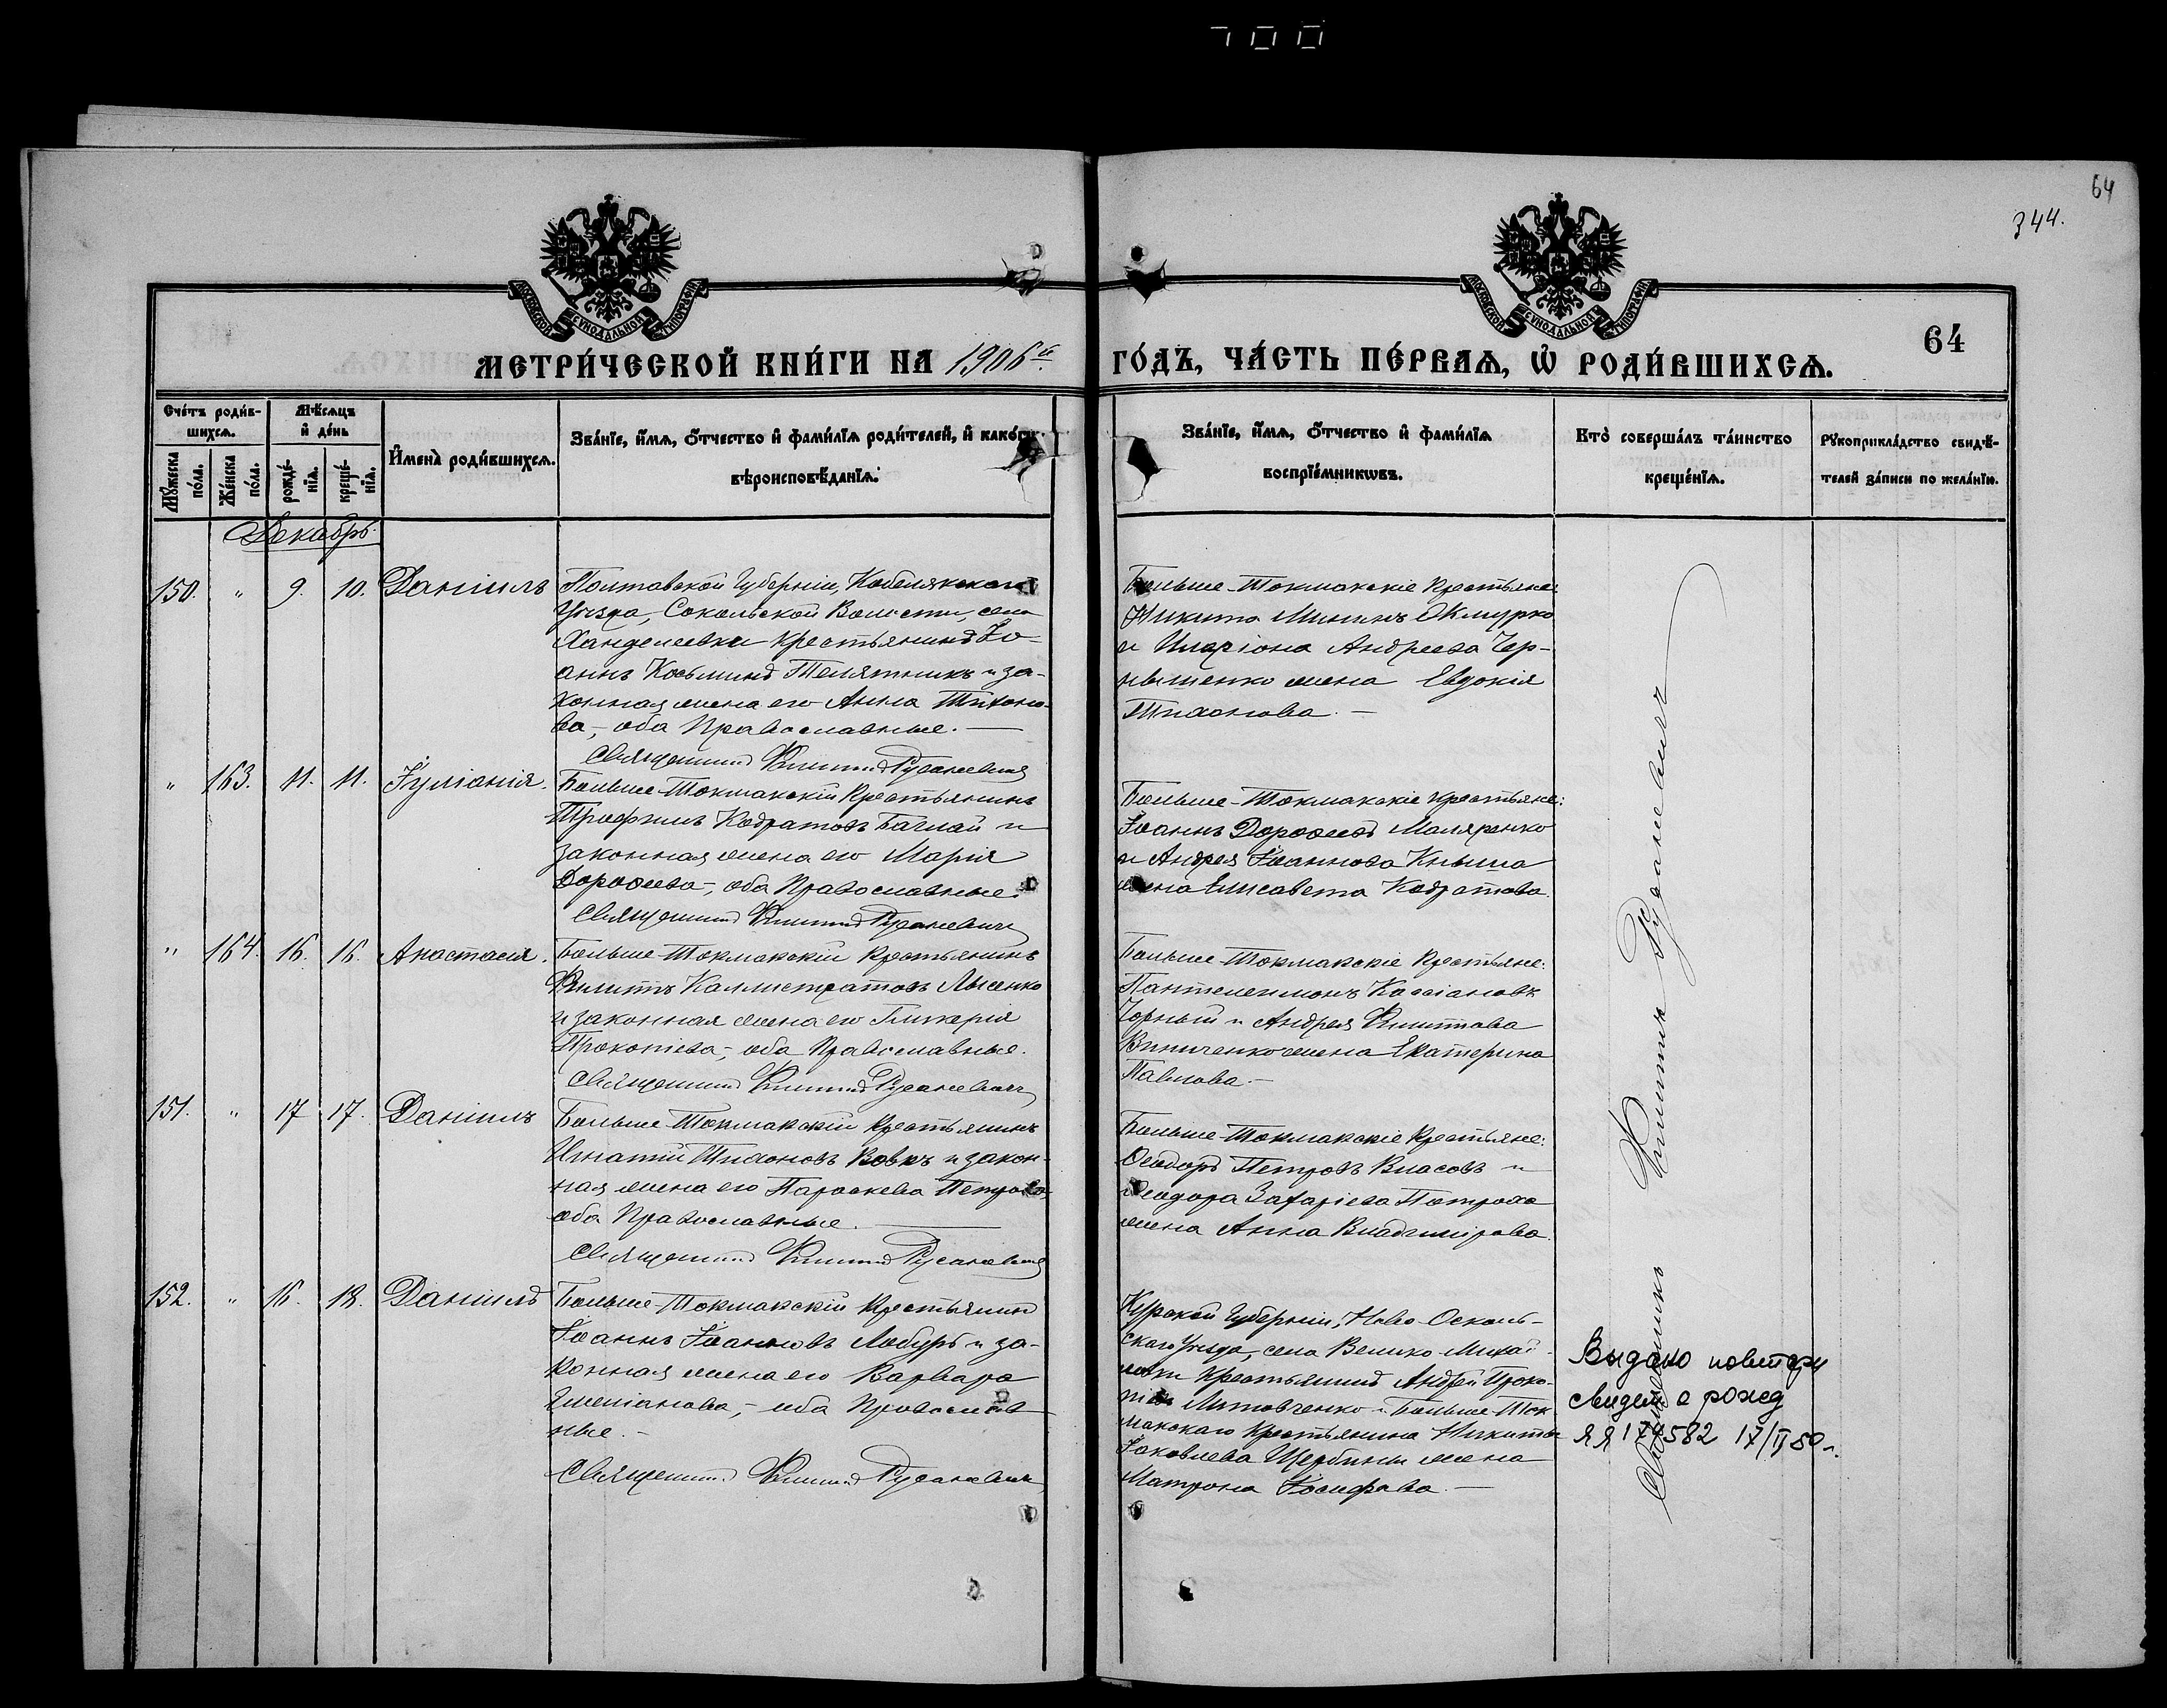 700
64
344.
МОСКОВСКОЙ СѴНОДАЛЬНОЙ ТИПОГРАФІИ
МОСКОВСКОЙ СѴНОДАЛЬНОЙ ТИПОГРАФІИ
64
МЕТРИ́ЧЕСКОЙ КНИ́ГИ НА 1906й ГО́ДЪ, ЧА́СТЬ ПЕ́РВАѦ, Ѡ҆ РОДИ́ВШИХСѦ.
Сче́тъ роди́в-
шихсѧ.
Мꙋ́жеска по́ла.
Же́нска по́ла.
Мѣ́сѧцъ
и҆ де́нь
рожде́-
нїѧ.
креще́-
нїѧ.
И҆мена̀ роди́вшихсѧ.
Зва́нїе, и҆́мѧ, ѻ҆́тчество и҆ фами́лїѧ роди́телей, и҆ како́гѡ
вѣроисповѣ́данїѧ.
Зва́нїе, и҆́мѧ, ѻ҆́тчество и҆ фами́лїѧ
воспрїе́мникѡвъ.
Кто̀ соверша́лъ та́инство
креще́нїѧ.
Рꙋкоприкла́дство свидѣ́-
телей за́писи по жела́нїю.
Декабрь.
150. " 9. 10. Даніилъ
Полтавской Губерніи, Кобелякскаго
Уѣзда, Сокольской Волости, села
Ханделеевки крестьянинъ Іо-
аннъ Косьминъ Телятникъ и за-
конная жена его Анна Тихоно-
ва, оба Православные. —
Священникъ Филиппъ Русаневичъ
Больше-Токмакскіе Крестьяне:
Никита Мининъ Жмурко
и Иларіона Андреева Чер-
нышенко жена Евдокія
Тихонова. —
" 163. 11. 11. Іуліанія.
Больше-Токмакскій Крестьянинъ
Трофимъ Кодратовъ Баглай и
законная жена его Марія
Дороѳеева, оба Православные.
Священникъ Филиппъ Русаневичъ
Больше-Токмакскіе крестьяне:
Іоаннъ Дороѳеевъ Маляренко
и Андрея Іоаннова Кныша
жена Елисавета Кодратова.
" 164. 16. 16. Анастасія.
Больше-Токмакскій Крестьянинъ
Филиппъ Каллистратовъ Лысенко
и законная жена его Гликерія
Прокопіева, оба Православные.
Священникъ Филиппъ Русаневичъ
Больше-Токмакскіе Крестьяне:
Пантелеимонъ Кассіановъ
Чорный и Андрея Филиппова
Винниченко жена Екатерина
Павлова. —
151. " 17 17. Даніилъ
Больше-Токмакскій Крестьянинъ
Игнатій Тихоновъ Вовкъ и закон-
ная жена его Параскева Петрова,
оба Православные. —
Священникъ Филиппъ Русаневичъ
Больше-Токмакскіе Крестьяне:
Ѳеодоръ Петровъ Власовъ и
Ѳеодора Захаріева Потроха
жена Анна Владимірова.
152. " 16. 18. Даніилъ
Больше-Токмакскій Крестьянинъ
Іоаннъ Іоанновъ Лобуръ и за-
конная жена его Варвара
Емеліанова, оба Православ-
ные. —
Священникъ Филиппъ Русаневичъ
Курской Губерніи, Ново-Осколь-
скаго Уѣзда, села Велико-Михай-
ловки Крестьянинъ Андрей Проко-
піевъ Литовченко и Больше-Ток-
макскаго Крестьянина Никиты
Іаковлева Щербины жена
Матрона Іосифова. —
Священникъ Филиппъ Русаневичъ
Выдано повторн
свидет о рожд
ЯЯ 174582 17/II 50 г.